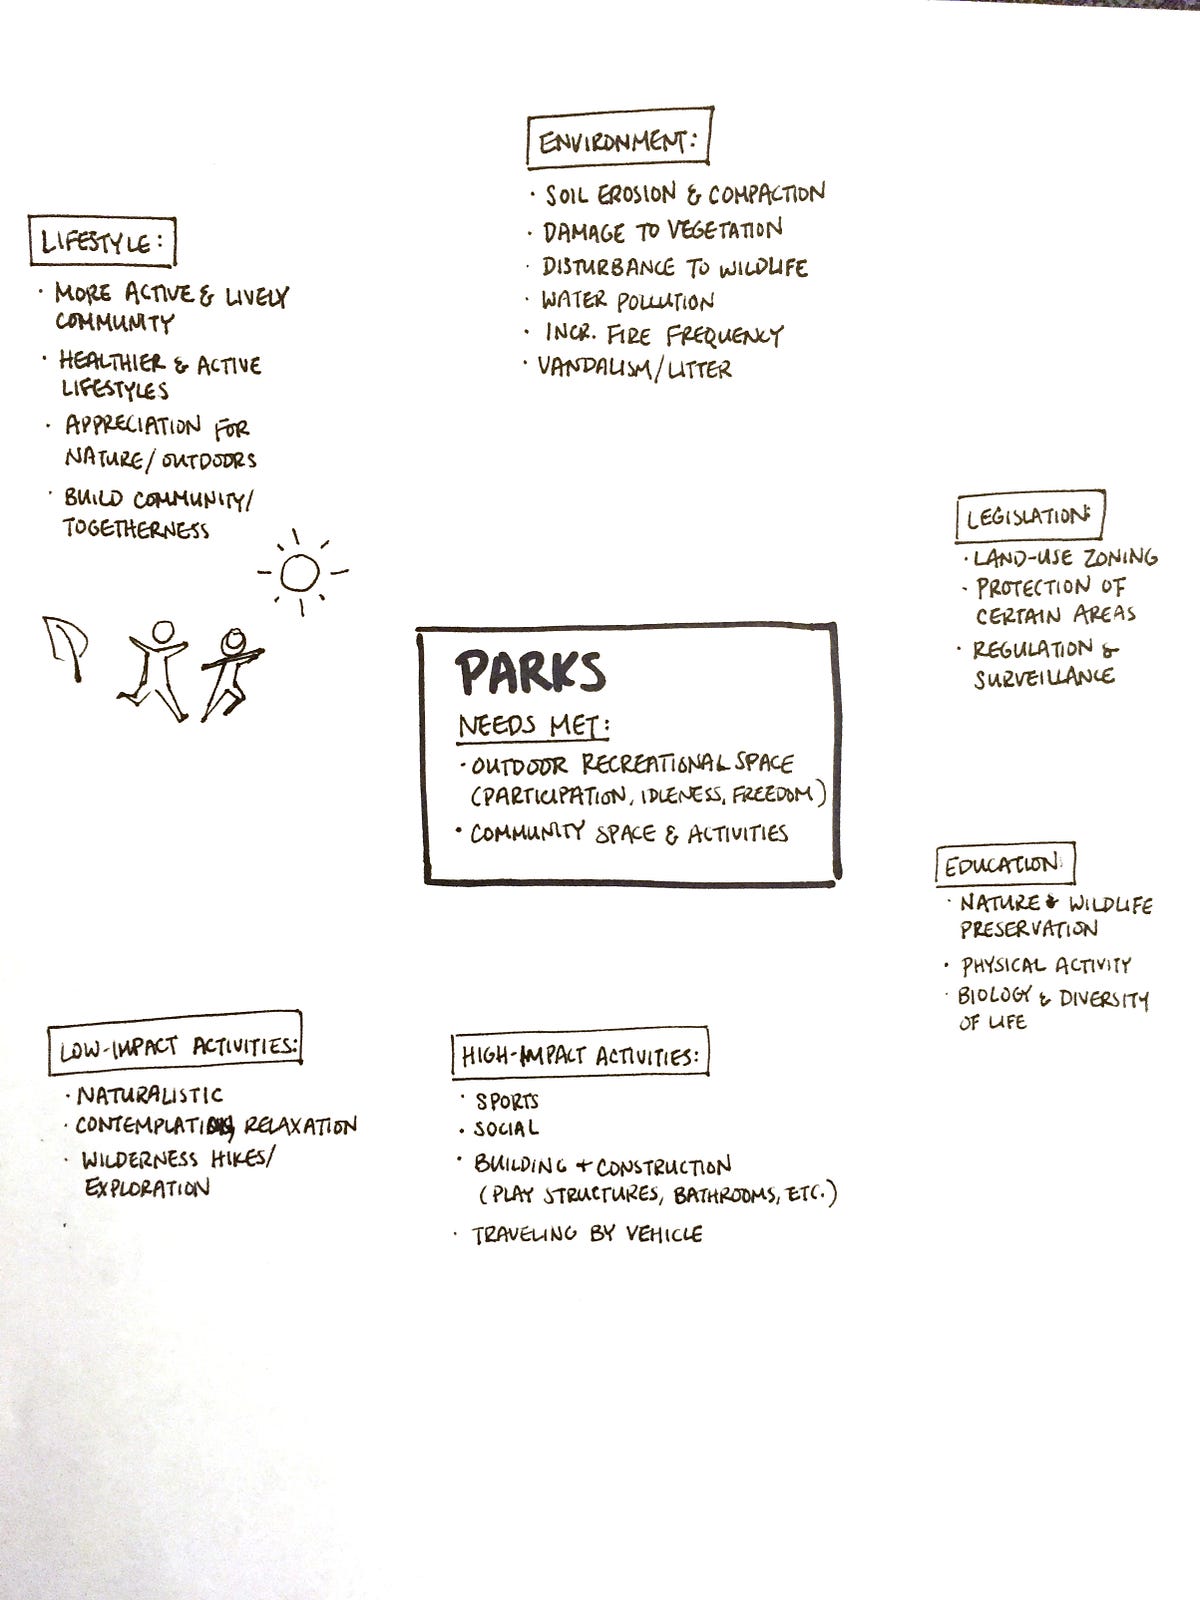 ENVIRONMENT:
· SOIL EROSION & COMPACTION
· DAMAGE TO VEGETATION
· DISTURBANCE TO WILDLIFE
· WATER POLLUTION
· INCR. FIRE FREQUENCY
· VANDALISM/LITTER
LIFESTYLE:
· MORE ACTIVE & LIVELY
COMMUNITY
· HEALTHIER & ACTIVE
LIFESTYLES
· APPRECIATION FOR
NATURE/OUTDOORS
· BUILD COMMUNITY/
TOGETHERNESS
LEGISLATION:
· LAND-USE ZONING
· PROTECTION OF
CERTAIN AREAS
· REGULATION &
SURVEILLANCE
PARKS
NEEDS MET:
· OUTDOOR RECREATIONAL SPACE
(PARTICIPATION, IDLENESS, FREEDOM)
· COMMUNITY SPACE & ACTIVITIES
EDUCATION:
· NATURE & WILDLIFE
PRESERVATION
· PHYSICAL ACTIVITY
· BIOLOGY & DIVERSITY
OF LIFE
LOW-IMPACT ACTIVITIES:
· NATURALISTIC
· CONTEMPLATION, RELAXATION
· WILDERNESS HIKES/
EXPLORATION
HIGH-IMPACT ACTIVITIES:
· SPORTS
· SOCIAL
· BUILDING + CONSTRUCTION
(PLAY STRUCTURES, BATHROOMS, ETC.)
· TRAVELING BY VEHICLE